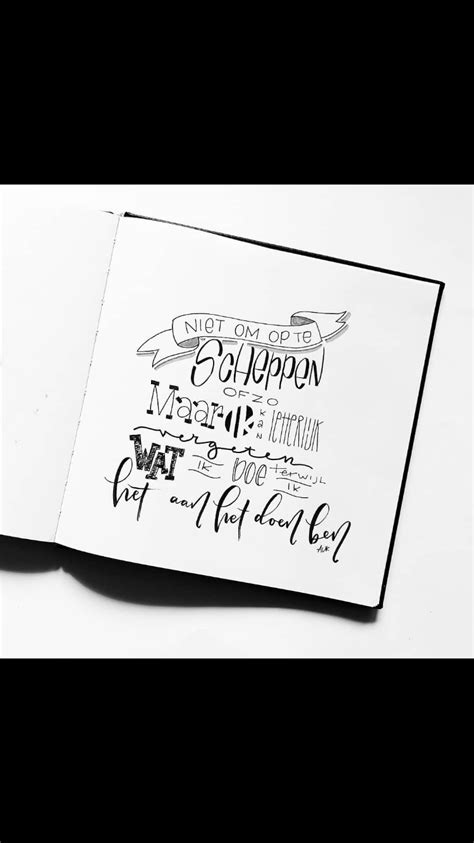 NIET OM OP TE
SCHEPPEN
OFZO
Maar IK KAN letterlijk
vergeten
WAT IK DOE terwijl IK
het aan het doen ben